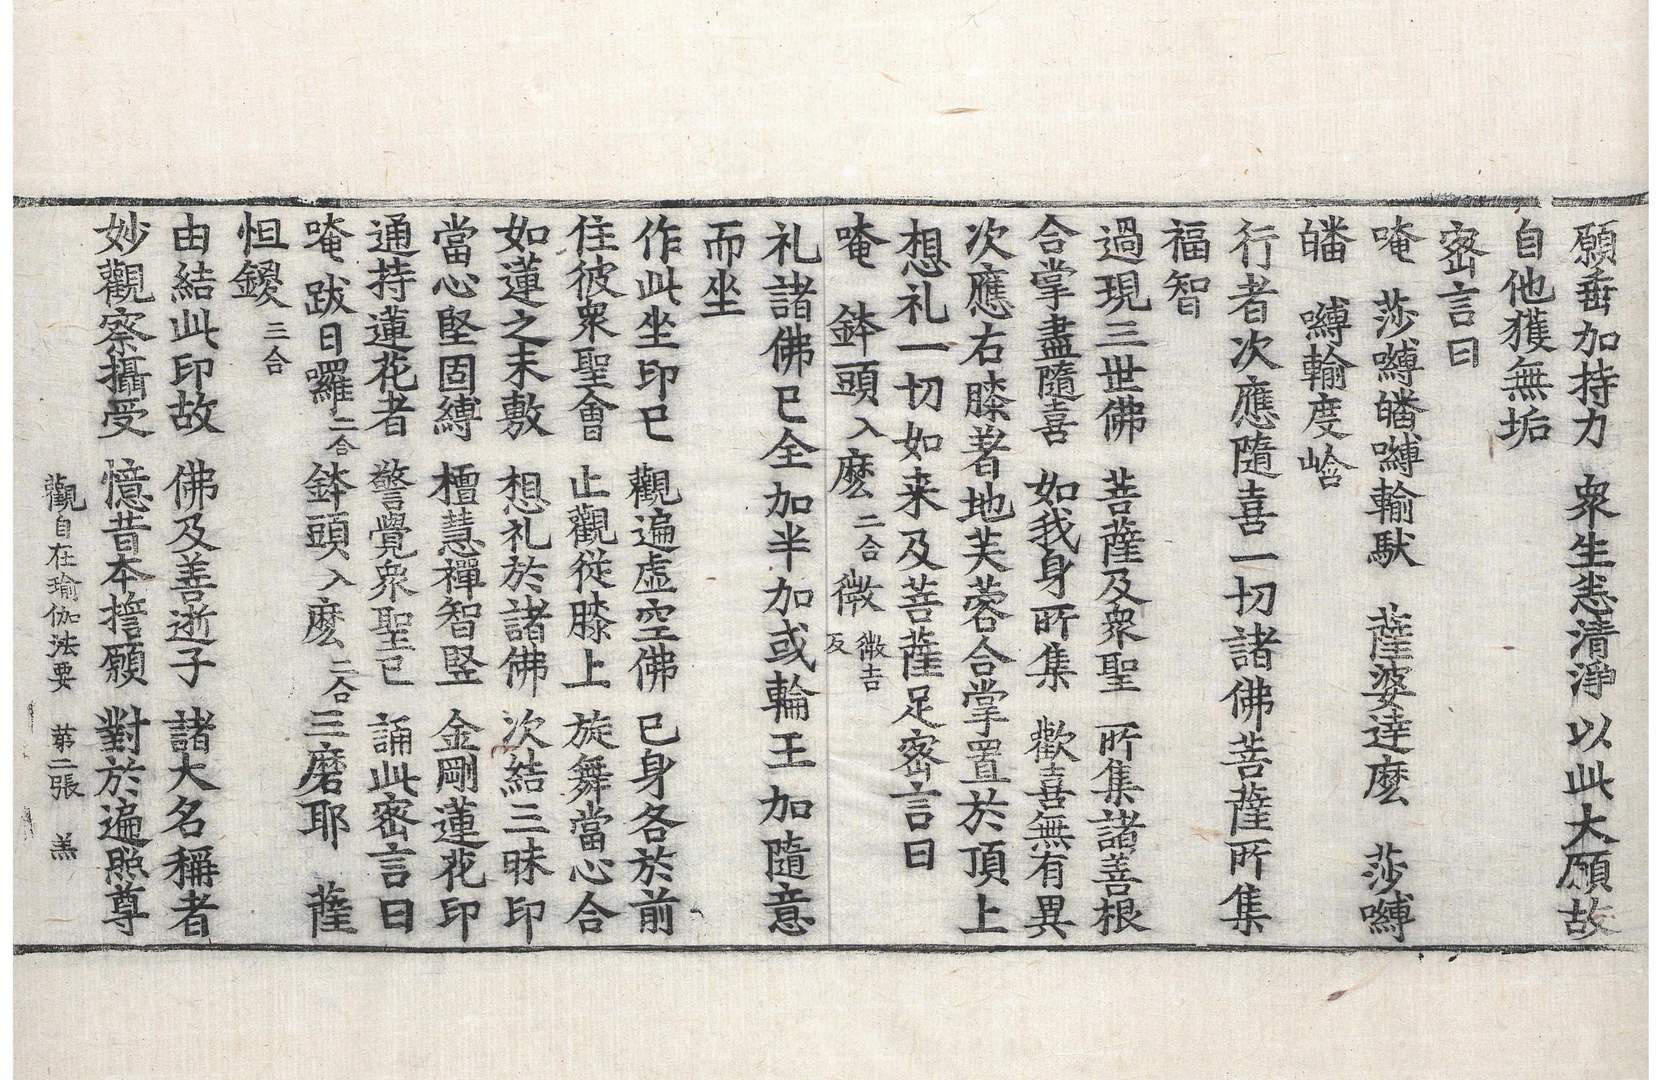 願垂加持力　衆生悉清淨　以此大願故
自他獲無垢
密言曰
唵　莎嚩皤嚩輸馱　薩婆達麽　莎嚩
皤　嚩輸度㗛
行者次應隨喜一切諸佛菩薩所集
福智
過現三世佛　菩薩及衆聖　所集諸善根
合掌盡隨喜　如我身所集　歡喜無有異
次應右膝著地芙蓉合掌置於頂上
想礼一切如来及菩薩足密言曰
唵　鉢頭入麽二合微微吉反
礼諸佛已全加半加或輪王加隨意
而坐
作此坐印已　觀遍虛空佛　已身各於前
住彼衆聖會　止觀從膝上　旋舞當心合
如蓮之未敷　想礼於諸佛　次結三昧印
當心堅固縛　檀慧禪智竪　金剛蓮花印
通持蓮花者　警覺衆聖已　誦此密言曰
唵跋日囉二合鉢頭入麽二合三磨耶　薩
怛鑁三合
由結此印故　佛及善逝子　諸大名稱者
妙觀察攝受　憶昔本誓願　對於遍照尊
觀自在瑜伽法要　第二張　羔